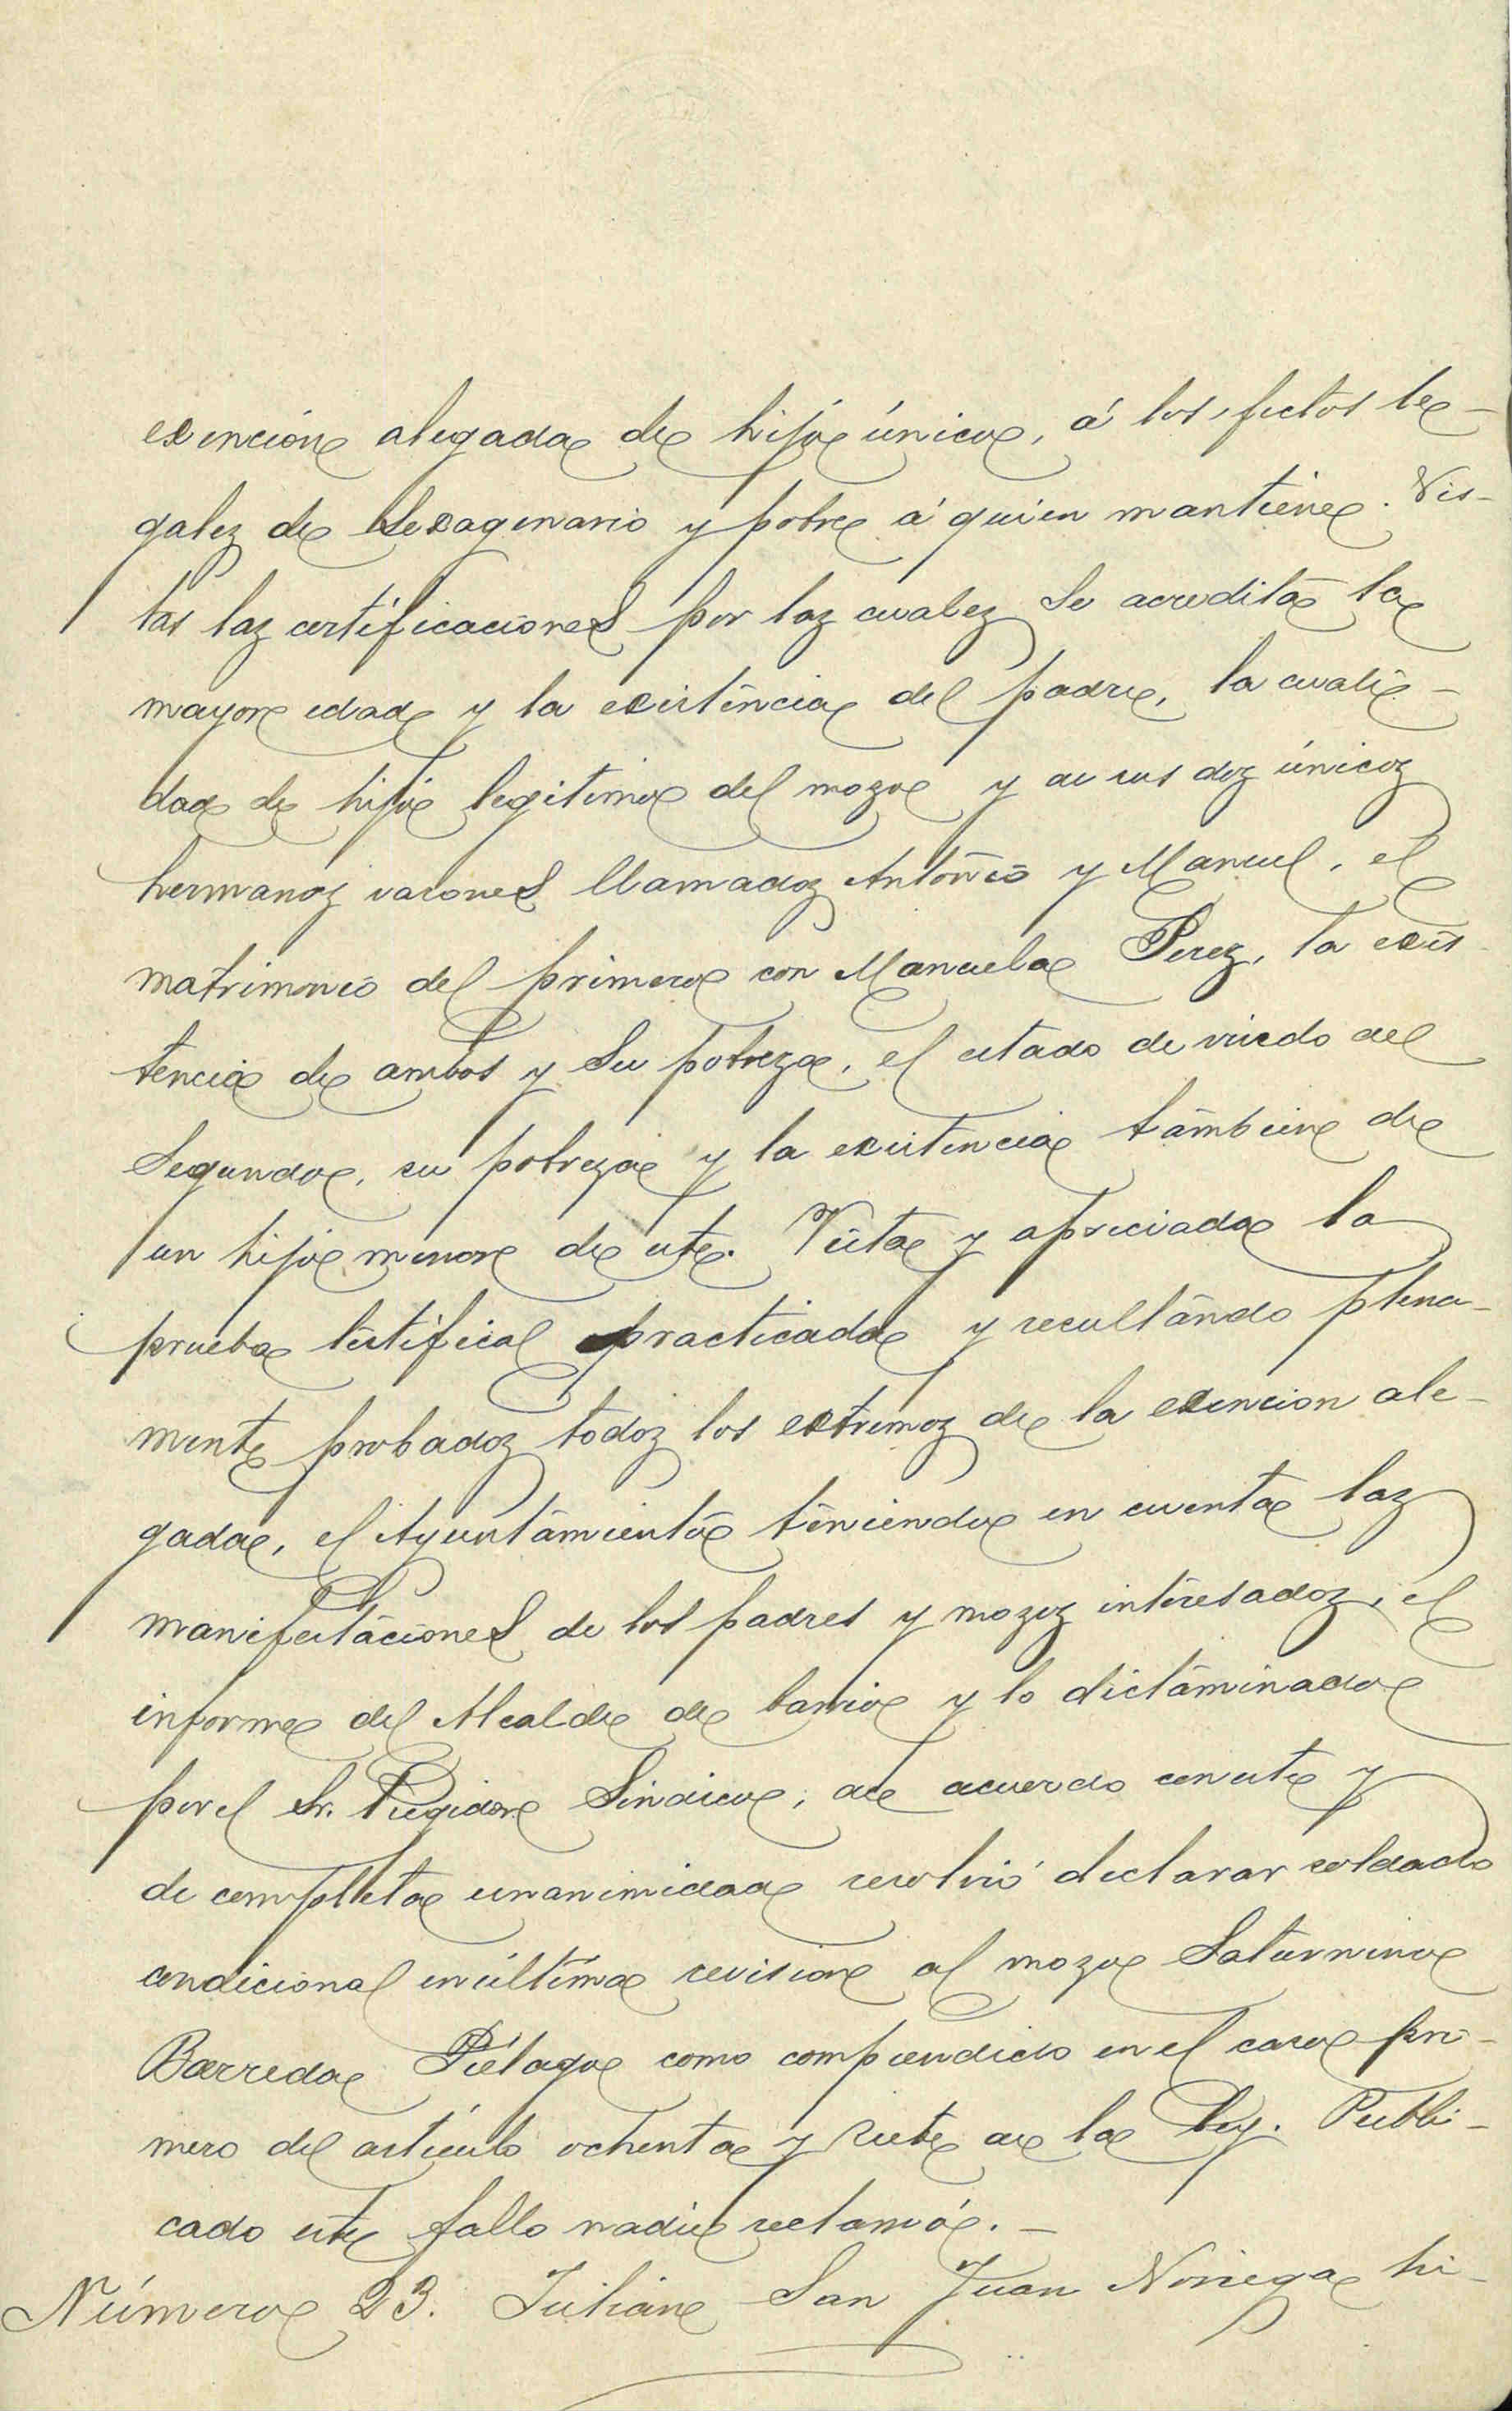 exención alegada de hijo único, á los efectos le-
gales de sexagenario y pobre á quien mantiene. Vis-
tas las certificaciones por las cuales se acredita la
mayor edad y la existencia del padre, la cuali-
dad de hijo legitimo del mozo y de sus dos únicos
hermanos varones llamados Antonio y Manuel, el
matrimonio del primero con Manuela Perez, la exis
tencia de ambos y su pobreza, el estado de viudo del
segundo, su pobreza y la existencia tambien de
un hijo menor de este. Vista y apreciada la
prueba testifical practicada y resultando plena-
mente probados todos los extremos de la exencion ale-
gada, el Ayuntamiento teniendo en cuenta las
manifestaciones de los padres y mozos interesados, el
informe del Alcalde de barrio y lo dictaminado
por el Sr. Regidor Sindico, de acuerdo con este y
de completa unanimidad resolvió declarar soldado
condicional en última revision al mozo Saturnino
Barreda Piélago como comprendido en el caso pri-
mero del artículo ochenta y siete de la Ley. Publi-
cado este fallo nadie reclamó. -
Número 23. Julian San Juan Noriega hi-